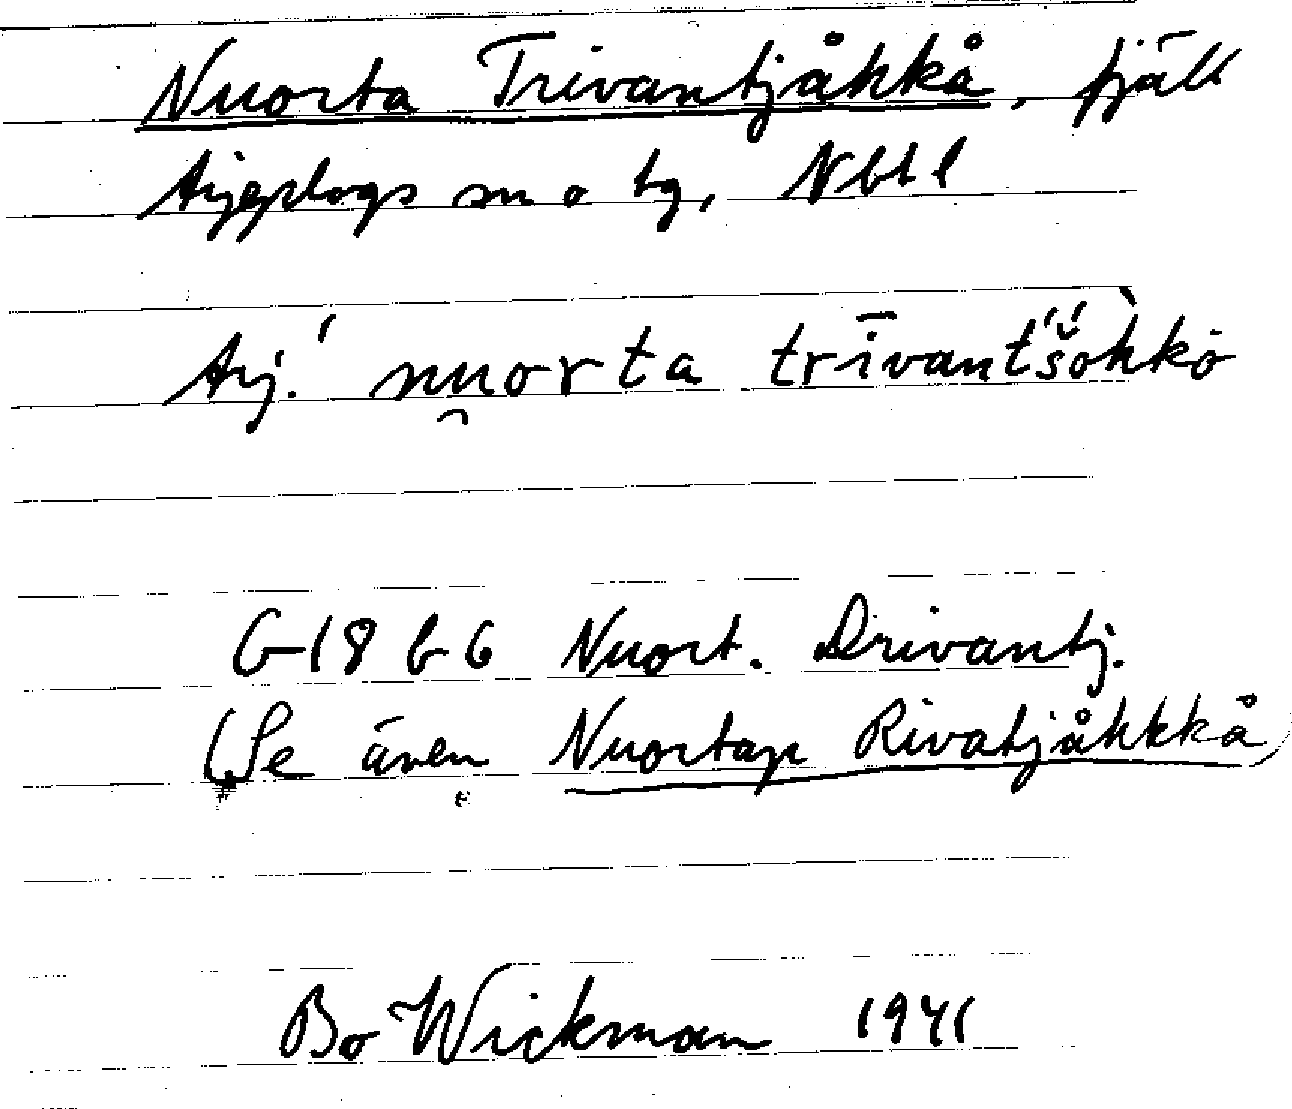 Nuorta Trivantjåkkå, fjäll
Arjeplogs sn o tg, Nbtl
Arj. ˈnu̯orta trīvantˈšòhkò
G-18 b 6 Nuort. Drivantj.
(Se även Nuortap Rivatjåkkkå)
Bo Wickman 1941